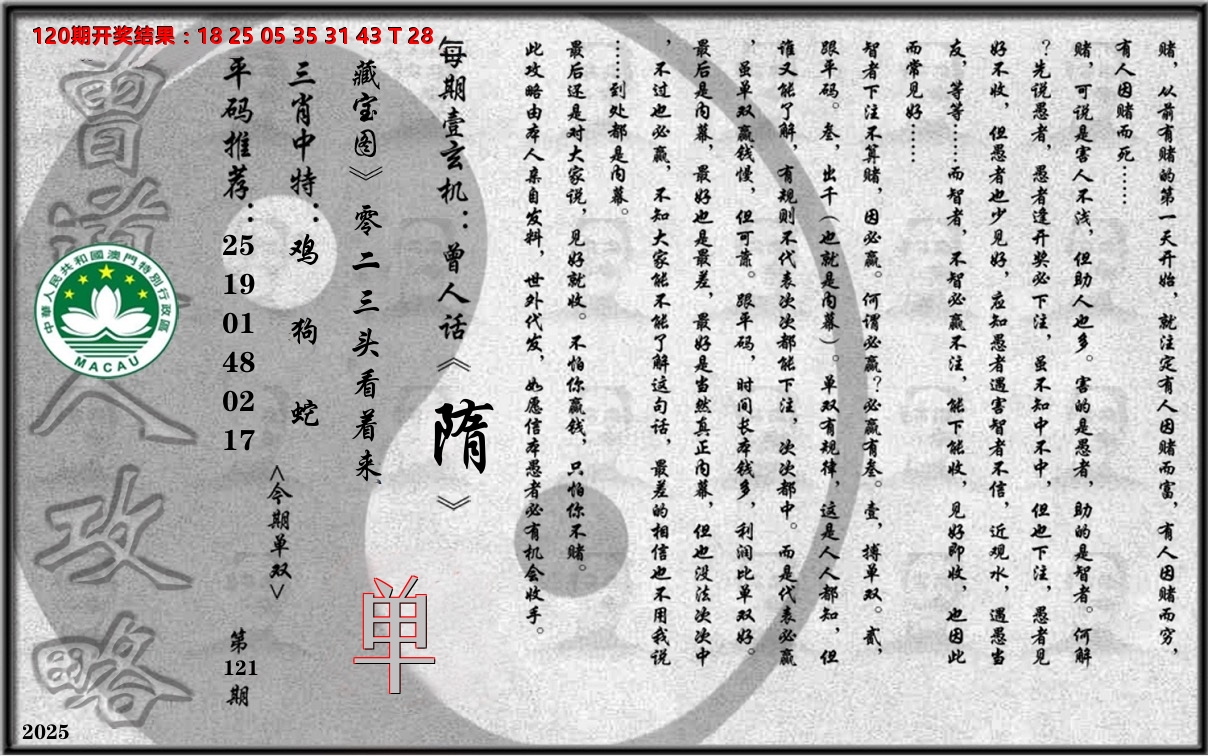 120期开奖结果：18 25 05 35 31 43 T 28
赌，从前有赌的第一天开始，就注定有人因赌而富，有人因赌而穷，
有人因赌而死……
赌，可说是害人不浅，但助人也多。害的是愚者，助的是智者。何解
？先说愚者，愚者逢开奖必下注，虽不知中不中，但也下注，愚者见
好不收，但愚者也少见好，应知愚者遇害智者不信，近观水，遇愚当
友，等等……而智者，不智必赢不注，能下能收，见好即收，也因此
而常见好……
智者下注不算赌，因必赢。何谓必赢？必赢有叁。壹，搏单双。贰，
跟平码。叁，出千（也就是内幕）。单双有规律，这是人人都知，但
谁又能了解，有规则不代表次次都能下注，次次都中。而是代表必赢
，虽单双赢钱慢，但可靠。跟平码，时间长本钱多，利润比单双好。
最后是内幕，最好也是最差，最好是当然真正内幕，但也没法次次中
，不过也必赢，不知大家能不能了解这句话，最差的相信也不用我说
……到处都是内幕。
最后还是对大家说，见好就收。不怕你赢钱，只怕你不赌。
此攻略由本人亲自发料，世外代发，如愿信本愚者必有机会收手。
每期壹玄机：曾人话《隋》
藏宝图》零二三头看着来
单
三肖中特：鸡 狗 蛇
<今期单双>
平码推荐：25 19 01 48 02 17
第121期
曾道人攻略
中華人民共和國澳門特別行政區
MACAU
2025